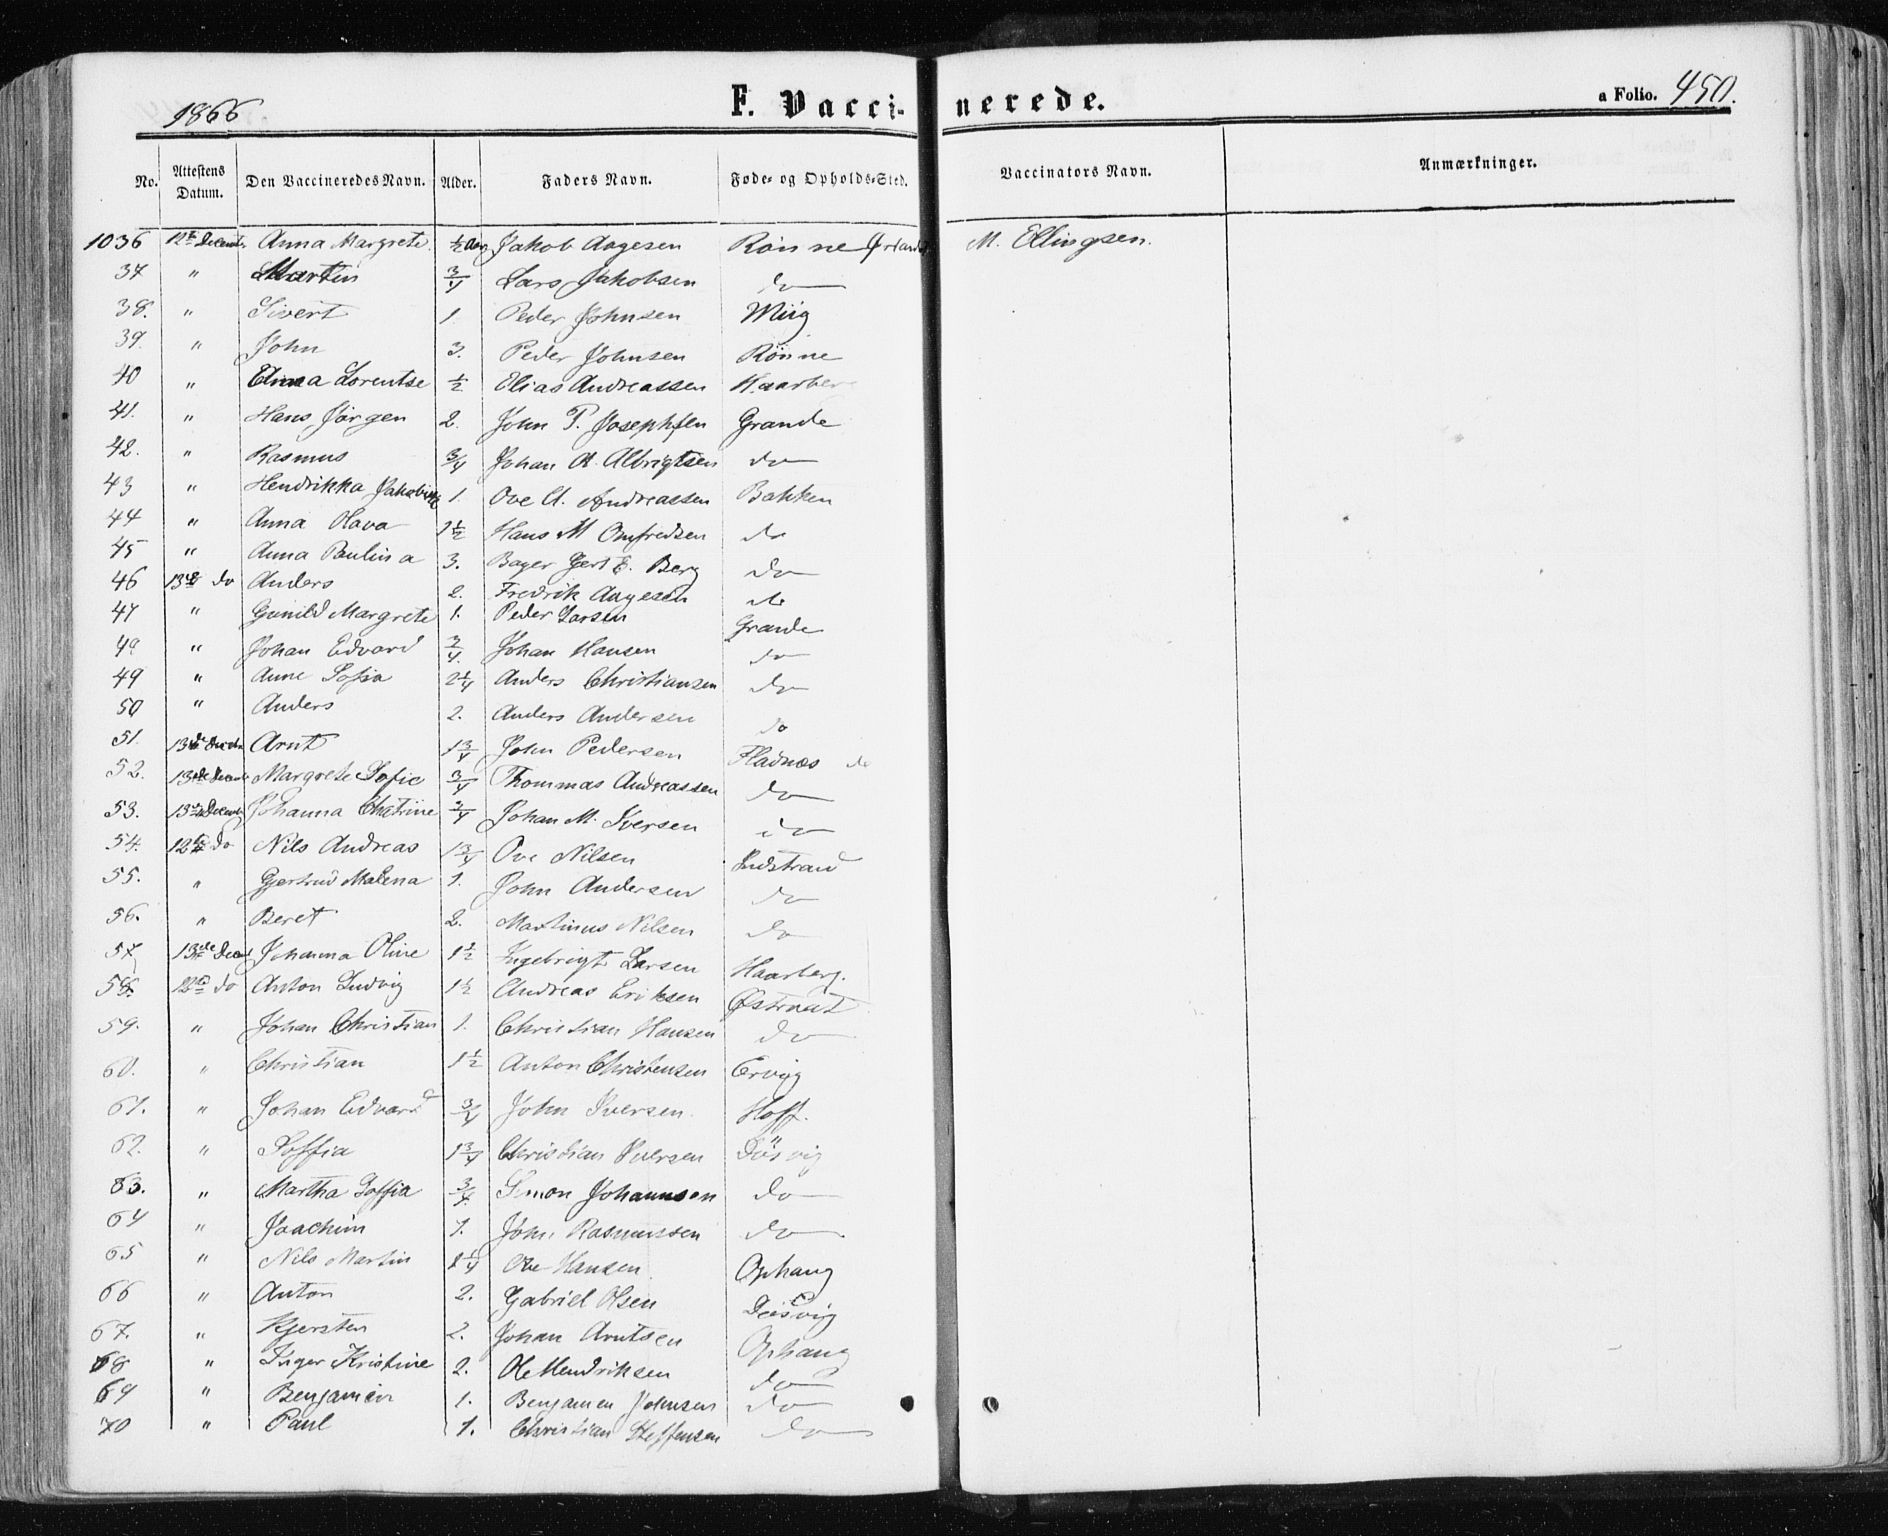 1866 F. Vacci- nerede. a Folio. 450.
No. Attestens Datum. Den Vaccineredes Navn. Alder. Faders Navn. Føde- og Opholds-Sted. Vaccinators Navn. Anmærkninger.
1036 12te Decemb Anna Margrete. ½ Aar Jakob Aagesen Rönne Ørland M. Ellingsen.
37 " Martin 3/4 Lars Jakobsen do
38. " Sivert 1. Peder Johnsen
39. " John 3. Peder Johnsen Rönne
40 " Lorentse ½ Elias Andreassen Haarberg
41. " Hans Jörgen 2. John P. Josephsen Grande
42. " Rasmus 3/4 Johan A. Albrigtsen do
43 " Hendrikka Jakobine 1. Ove A. Andreassen Bakken
44 " Anna Olava 1½ Hans M Onfredsen do
45 " Anna Paulina 3. Gert E. Berg do
46 13de do Anders 2. Fredrik Aagesen do
47 " Gunild Margrete 1. Peder Larsen Grande
48 " Johan Edvard 3/4. Johan Hansen do
49 " Anne Sofia 2¼ Anders Christiansen do
50 " Anders 2. Anders Andersen do
51. 13de Decbr Arnt 1¾ John Pedersen Fladnæs do
52. 13de Decemb Margrete Sofie 3/4 Thommas Andreassen do
53. 13de Decemb Johanna Chatrine 3/4 Johan M. Iversen do
54. 12te do Nils Andreas 1¾ Ove Nilsen Indstrand
55. " Gjertrud Malena 1. John Andersen do
56. " Beret 2. Martinus Nilsen do
57. 13de Decemb Johanna Oline 1½ Ingebrigt Larsen Haarberg.
58. 12te do Anton Ludvig 1½ Andreas Eriksen Østraat
59. " Johan Christian 1. Christian Hansen do
60. " Christian 1½ Anton Christensen Ervig
61. " Johan Edvard 3/4 John Iversen. Hoff.
62. " Soffia 1¾ Christian Iversen Düsvig
63. " Martha Soffia 3/4. Simon Johannsen do
64 " Joachim 1. John Rasmussen do
65 " Nils Martin 1¼ Ove Hansen. Ophaug
66 " Anton 2. Gabriel Olsen Düsvig
67. " Kjersten 2. Johan Arntsen Ophaug
68 " Inger Kristine 2. Ole Hendriksen do
69 " Benjamin 1. Benjamen Johnsen do
70 " Paul 1. Christian Steffensen do